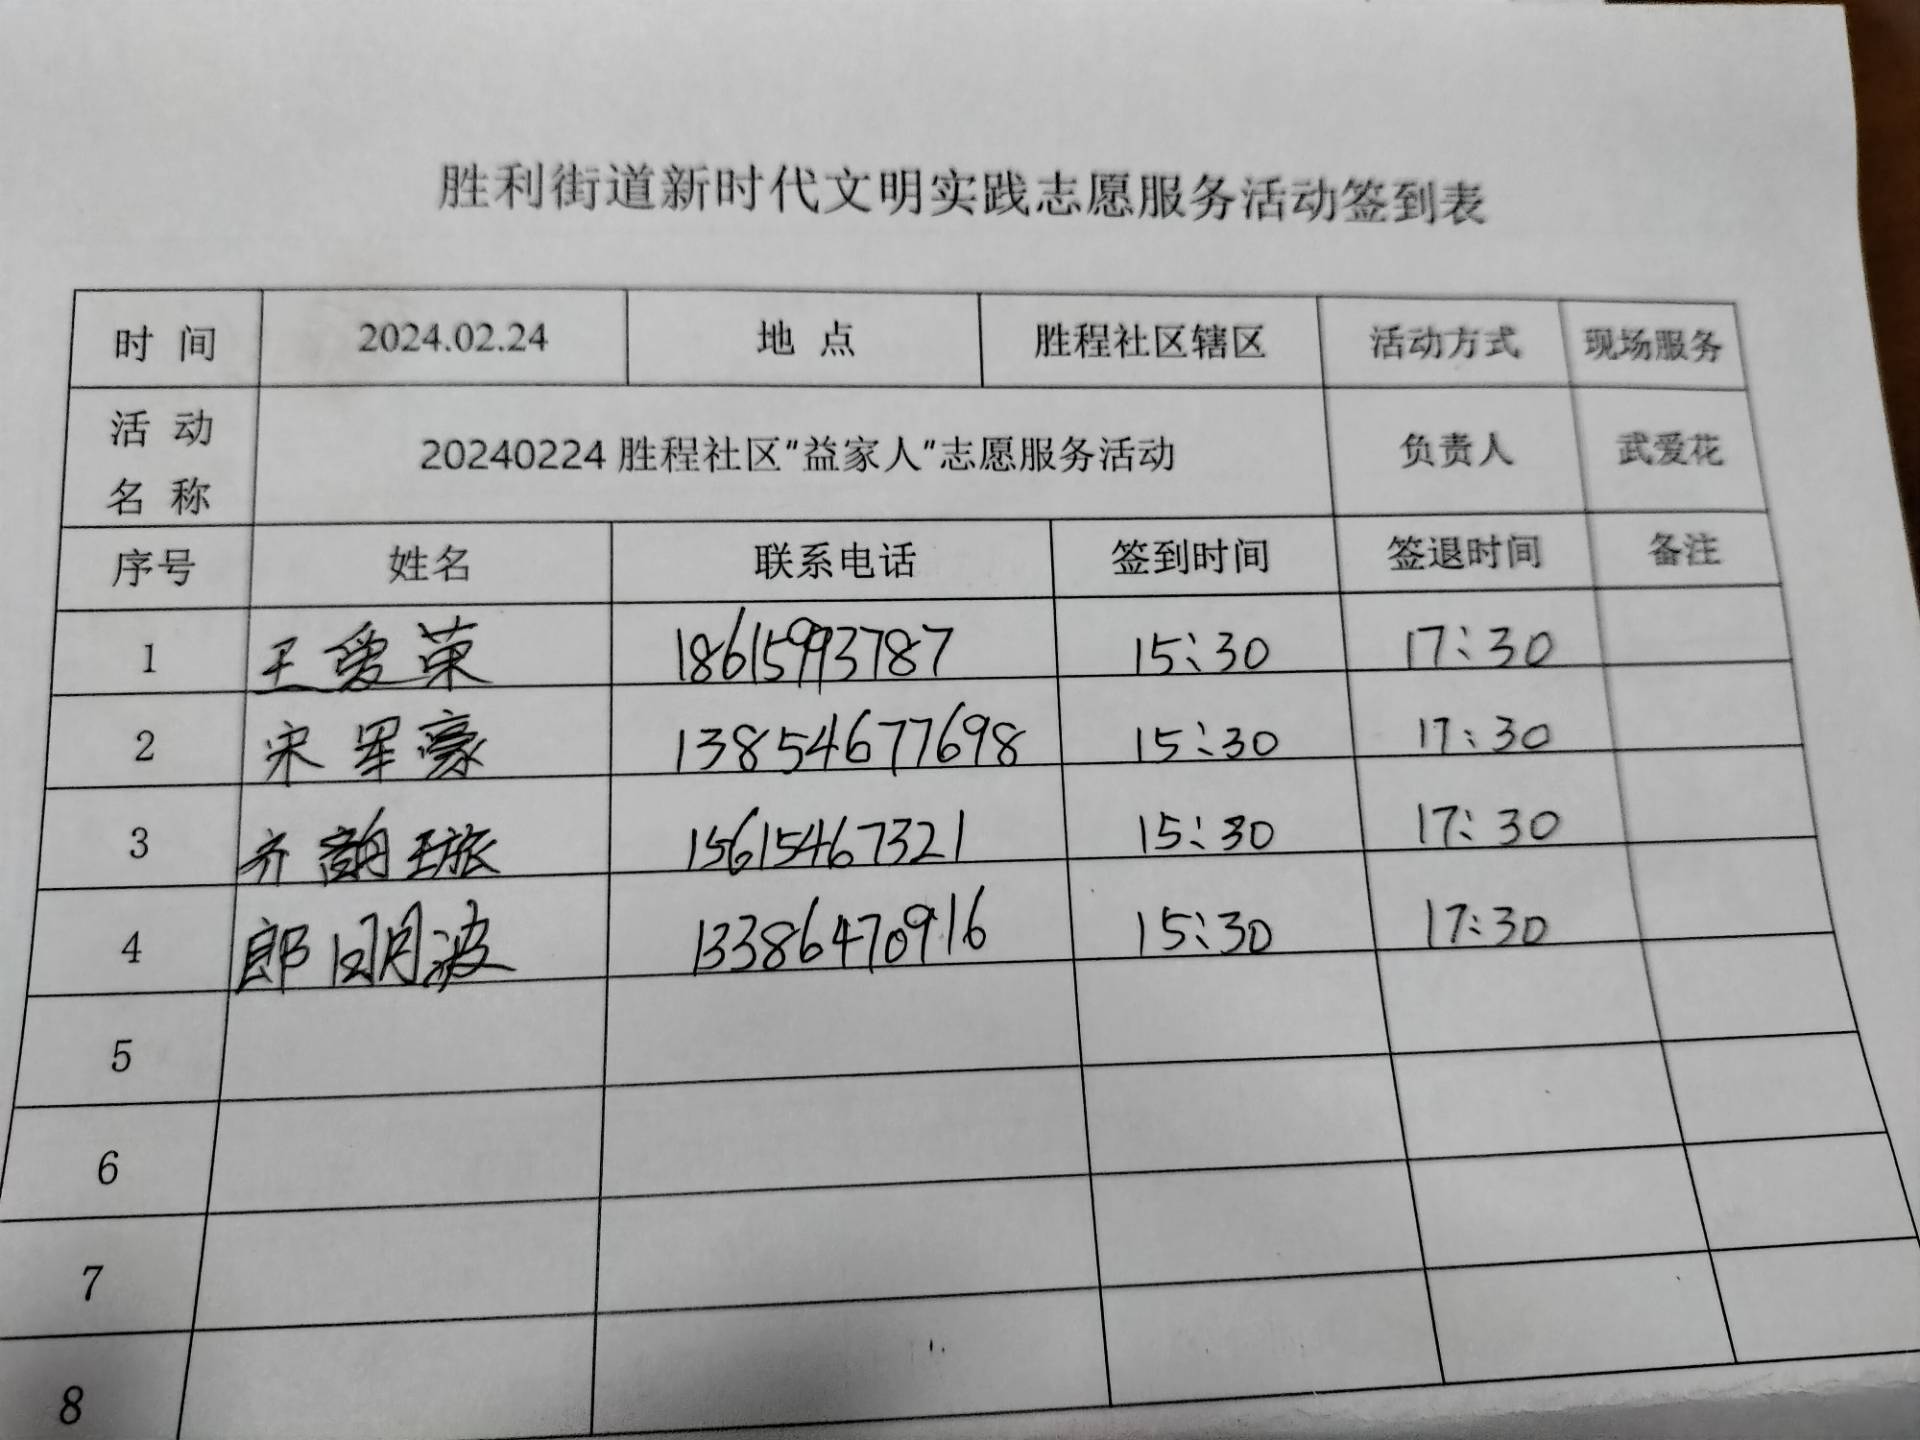 胜利街道新时代文明实践志愿服务活动签到表
时 间 2024.02.24 地 点 胜程社区辖区 活动方式 现场服务
活 动 名 称 20240224 胜程社区“益家人”志愿服务活动 负责人 武爱花
序号 姓名 联系电话 签到时间 签退时间 备注
1 王爱荣 18615993787 15:30 17:30
2 宋军豪 13854677698 15:30 17:30
3 齐韵璇 15615467321 15:30 17:30
4 郎明波 13386470916 15:30 17:30
5
6
7
8